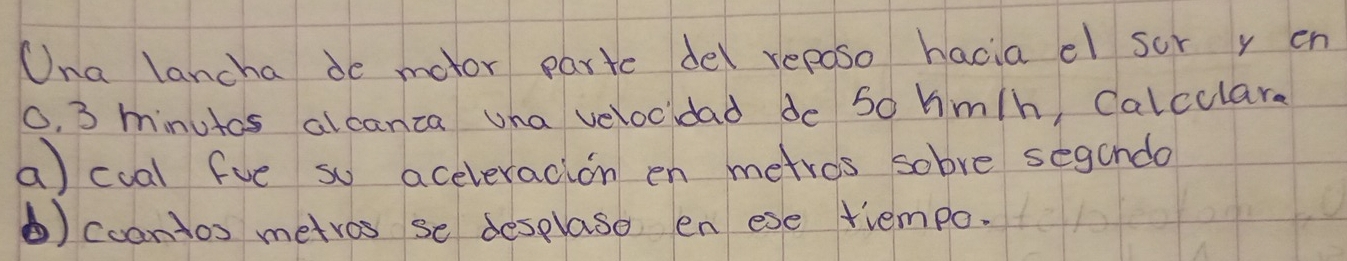 Una lancha de motor parte del reposo hacia el sur y en
0.3 minutos alcanza una velocidad de 50 km/h, Calcular.
a) cual fue su aceleración en metros sobre segundo
b) cuantos metros se desplaso en ese tiempo.